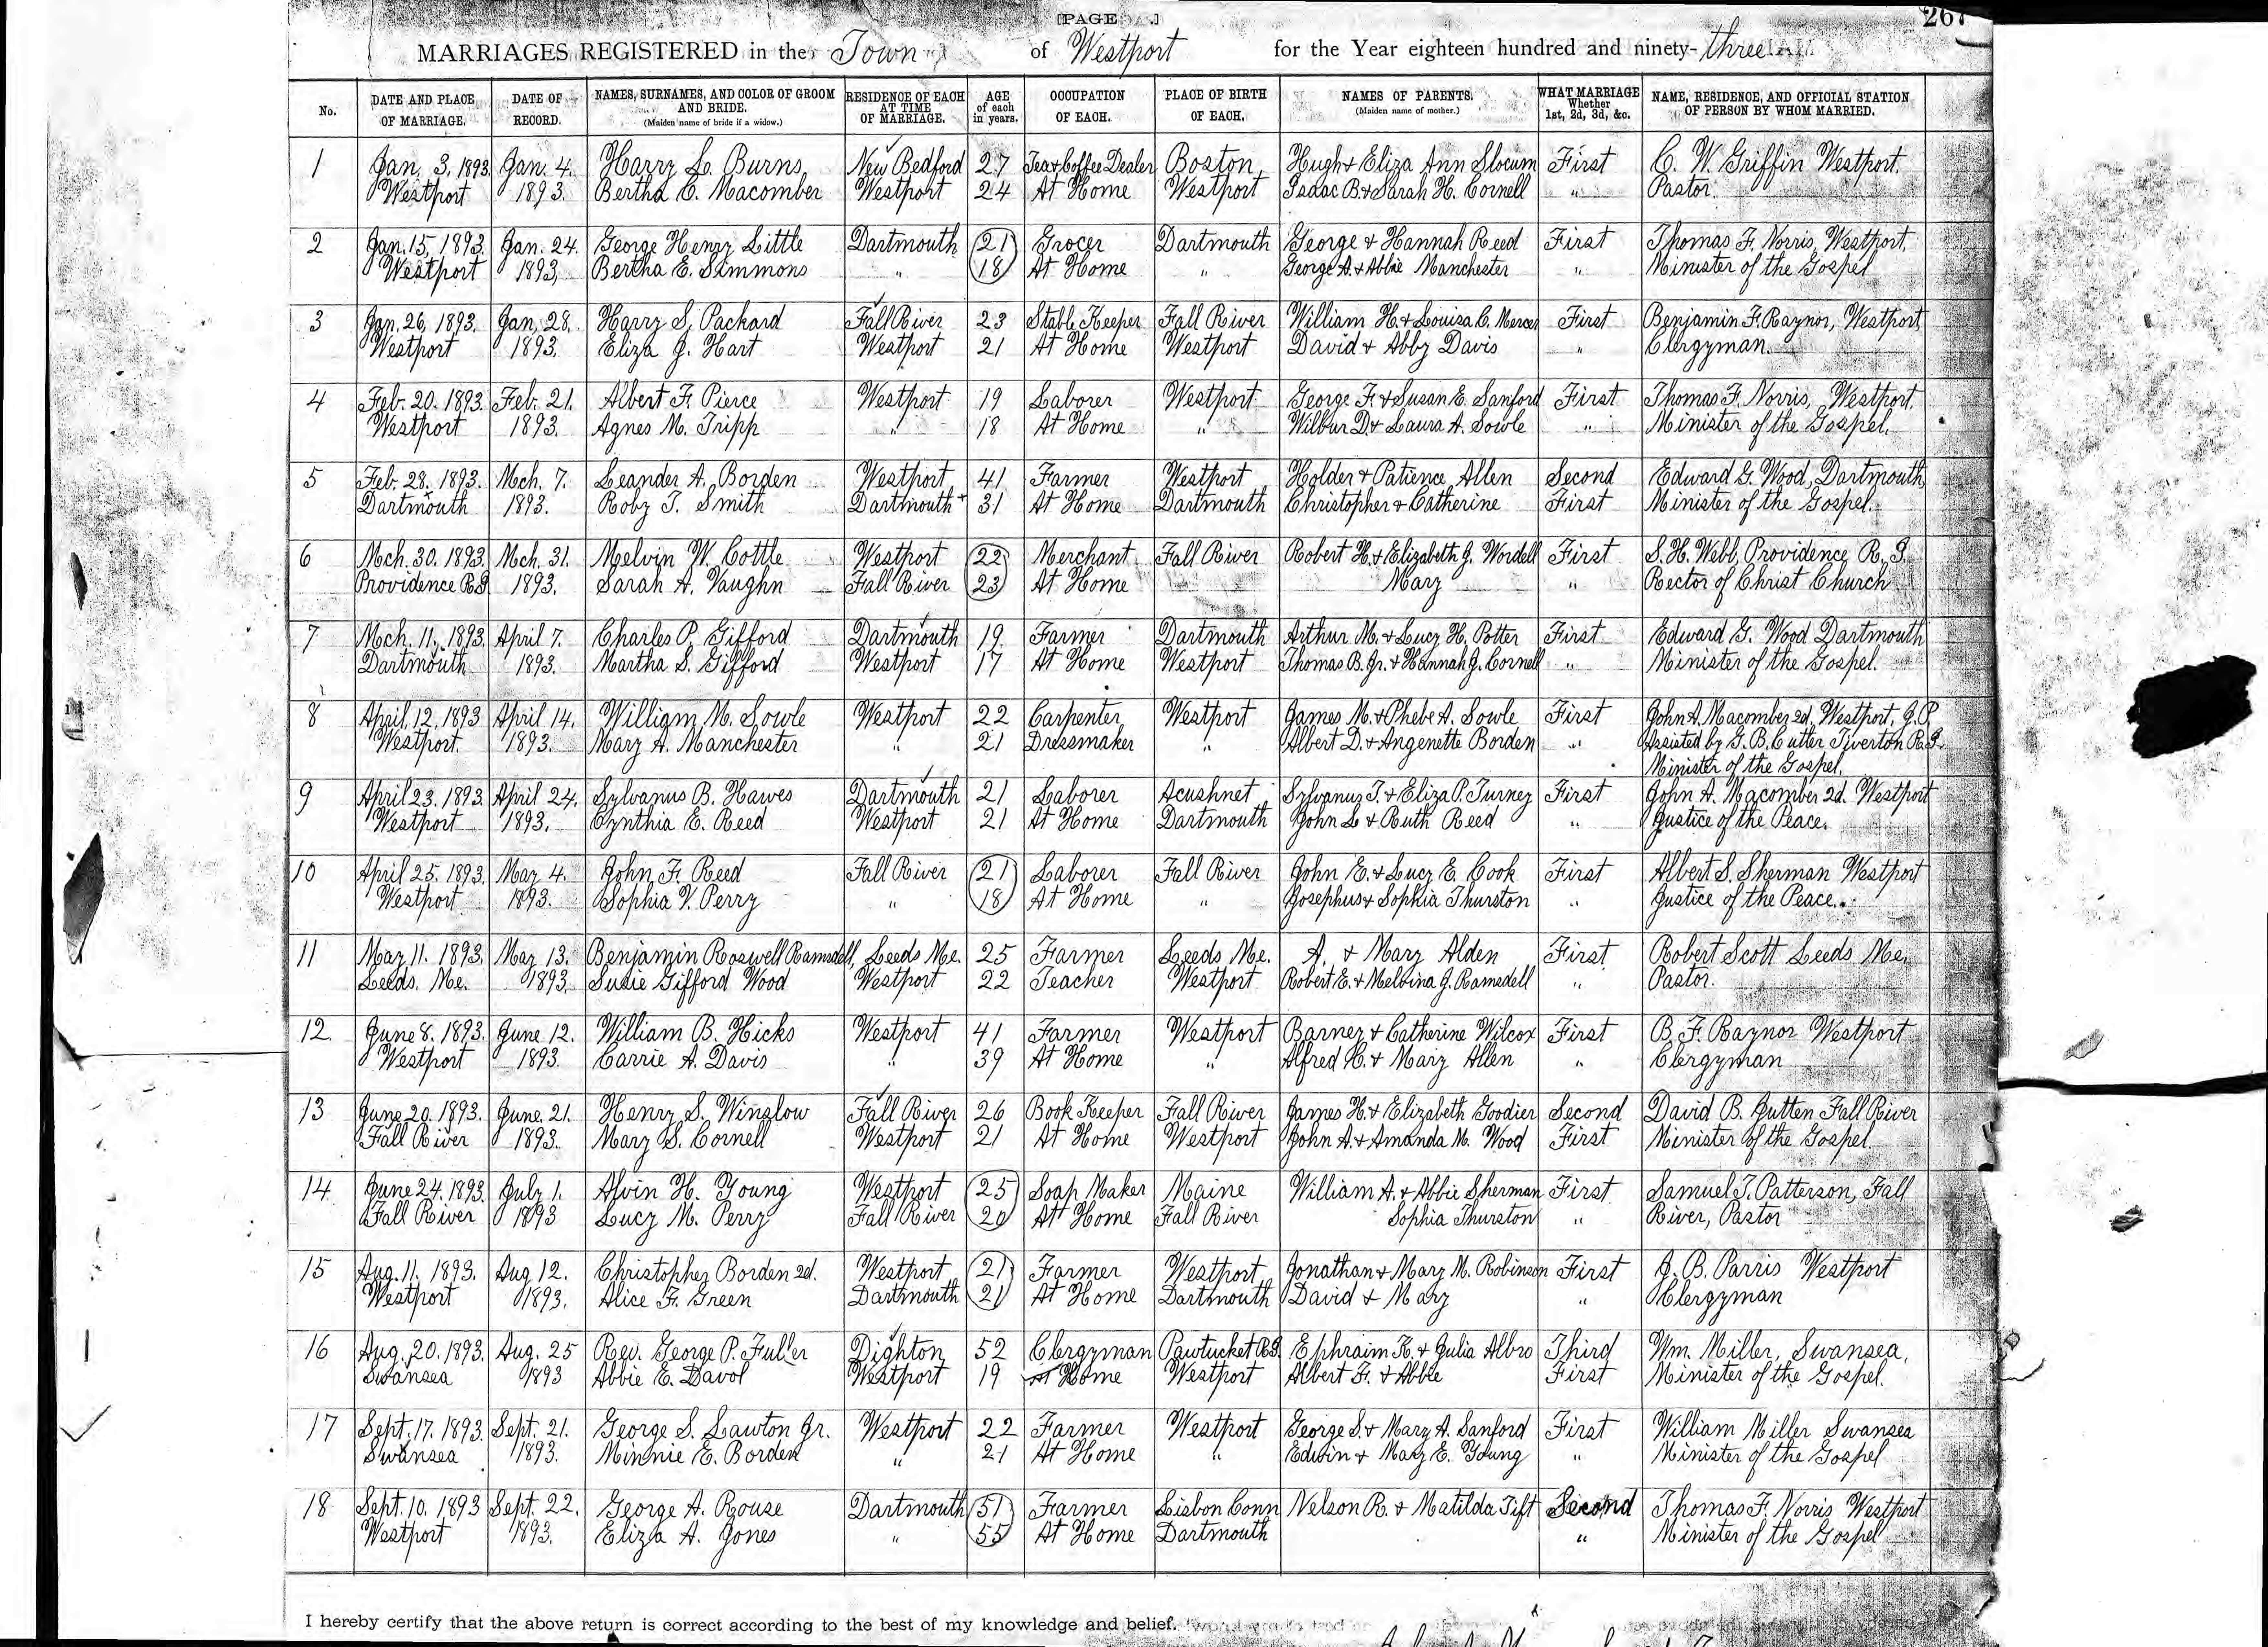 [PAGE .]
267
MARRIAGES REGISTERED in the Town of Westport for the Year eighteen hundred and ninety-three
No. DATE AND PLACE OF MARRIAGE. DATE OF RECORD. NAMES, SURNAMES, AND COLOR OF GROOM AND BRIDE. (Maiden name of bride if a widow.) RESIDENCE OF EACH AT TIME OF MARRIAGE. AGE of each in years. OCCUPATION OF EACH. PLACE OF BIRTH OF EACH. NAMES OF PARENTS. (Maiden name of mother.) WHAT MARRIAGE Whether 1st, 2d, 3d, &c. NAME, RESIDENCE, AND OFFICIAL STATION OF PERSON BY WHOM MARRIED.
1 Jan. 3, 1893 Jan. 4. Harry L. Burns New Bedford 27 Tea & Coffee Dealer Boston Hugh & Eliza Ann Slocum First C. W. Griffin Westport.
Westport 1893. Bertha E. Macomber Westport 24 At Home Westport Isaac B. & Sarah H. Cornell " Pastor.
2 Jan. 15, 1893. Jan. 24. George Henry Little Dartmouth 21 Grocer Dartmouth George & Hannah Reed First Thomas F. Norris, Westport.
Westport 1893, Bertha E. Simmons " 18 At Home " George A. & Abbie Manchester " Minister of the Gospel
3 Jan. 26, 1893. Jan. 28. Harry S. Packard Fall River 23 Stable Keeper Fall River William H. & Louisa C. Mercer First Benjamin F. Raynor, Westport
Westport 1893. Eliza J. Hart Westport 21 At Home Westport David & Abby Davis " Clergyman.
4 Feb. 20. 1893. Feb. 21. Albert F. Pierce Westport 19 Laborer Westport George F. & Susan E. Sanford First Thomas F. Norris, Westport.
Westport 1893. Agnes M. Tripp " 18 At Home " Wilbur D. & Laura A. Sowle " Minister of the Gospel.
5 Feb. 28. 1893. Mch. 7. Leander A. Borden Westport 41 Farmer Westport Holder & Patience Allen Second Edward G. Wood, Dartmouth
Dartmouth 1893. Roby T. Smith Dartmouth 31 At Home Dartmouth Christopher & Catherine First Minister of the Gospel.
6 Mch. 30. 1893. Mch. 31. Melvin W. Cottle Westport 22 Merchant Fall River Robert H. & Elizabeth J. Wordell First S. H. Webb, Providence R. I.
Providence R.I 1893. Sarah A. Vaughn Fall River 23 At Home Mary " Rector of Christ Church
7 Mch. 11, 1893. April 7. Charles P. Gifford Dartmouth 19 Farmer Dartmouth Arthur M. & Lucy H. Potter First Edward G. Wood Dartmouth
Dartmouth 1893. Martha S. Gifford Westport 17 At Home Westport Thomas B. Jr. & Hannah J. Cornell " Minister of the Gospel.
8 April, 12, 1893 April 14. William M. Sowle Westport 22 Carpenter Westport James M. & Phebe A. Sowle First John A. Macomber 2d, Westport, J. P.
Westport. 1893. Mary A. Manchester " 21 Dressmaker " Albert D. & Angenette Borden " Assisted by G. B. Cutter Tiverton R. I.
Minister of the Gospel.
9 April 23. 1893. April 24. Sylvanus B. Hawes Dartmouth 21 Laborer Acushnet Sylvanus T. & Eliza P. Turney First John A. Macomber 2d. Westport
Westport 1893. Cynthia E. Reed Westport 21 At Home Dartmouth John L & Ruth Reed " Justice of the Peace.
10 April 25. 1893. May 4. John F. Reed Fall River 21 Laborer Fall River John E. & Lucy E. Cook First Albert S. Sherman Westport
Westport 1893. Sophia V. Perry " 18 At Home " Josephus & Sophia Thurston " Justice of the Peace.
11 May 11. 1893. May 13. Benjamin Roswell Ramsdell, Leeds Me. 25 Farmer Leeds Me. A. & Mary Alden First Robert Scott Leeds Me.
Leeds, Me. 1893. Susie Gifford Wood Westport 22 Teacher Westport Robert E. & Melvina J. Ramsdell " Pastor.
12. June 8. 1893. June 12. William B. Hicks Westport 41 Farmer Westport Barney & Catherine Wilcox First B. F. Raynor Westport
Westport 1893. Carrie A. Davis " 39 At Home " Alfred C. & Mary Allen " Clergyman
13 June 20. 1893. June 21. Henry S. Winslow Fall River 26 Book Keeper Fall River James H. & Elizabeth Goodier Second David B. Jutten Fall River
Fall River 1893. Mary S. Cornell Westport 21 At Home Westport John A. & Amanda M. Wood First Minister of the Gospel
14 June 24. 1893. July 1. Alvin H. Young Westport 25 Soap Maker Maine William A. & Abbie Sherman First Samuel T. Patterson, Fall
Fall River 1893 Lucy M. Perry Fall River 20 At Home Fall River Sophia Thurston " River, Pastor
15 Aug. 11. 1893. Aug 12. Christopher Borden 2d. Westport 21 Farmer Westport Jonathan & Mary M. Robinson First J. B. Parris Westport
Westport 1893. Alice F. Green Dartmouth 21 At Home Dartmouth David & Mary " Clergyman
16 Aug. 20. 1893. Aug. 25 Rev. George P. Fuller Dighton 52 Clergyman Pawtucket R.I. Ephraim K. & Julia Albro Third Wm. Miller, Swansea,
Swansea 1893 Abbie E. Davol Westport 19 At Home Westport Albert F. & Abbie First Minister of the Gospel.
17 Sept. 17. 1893. Sept. 21. George S. Lawton Jr. Westport 22 Farmer Westport George S. & Mary A. Sanford First William Miller Swansea
Swansea 1893. Minnie E. Borden " 21 At Home " Edwin & Mary E. Young " Minister of the Gospel
18 Sept. 10, 1893 Sept. 22. George A. Rouse Dartmouth 51 Farmer Lisbon Conn Nelson R. & Matilda Tift Second Thomas F. Norris Westport
Westport 1893. Eliza A. Jones " 55 At Home Dartmouth " Minister of the Gospel
I hereby certify that the above return is correct according to the best of my knowledge and belief.